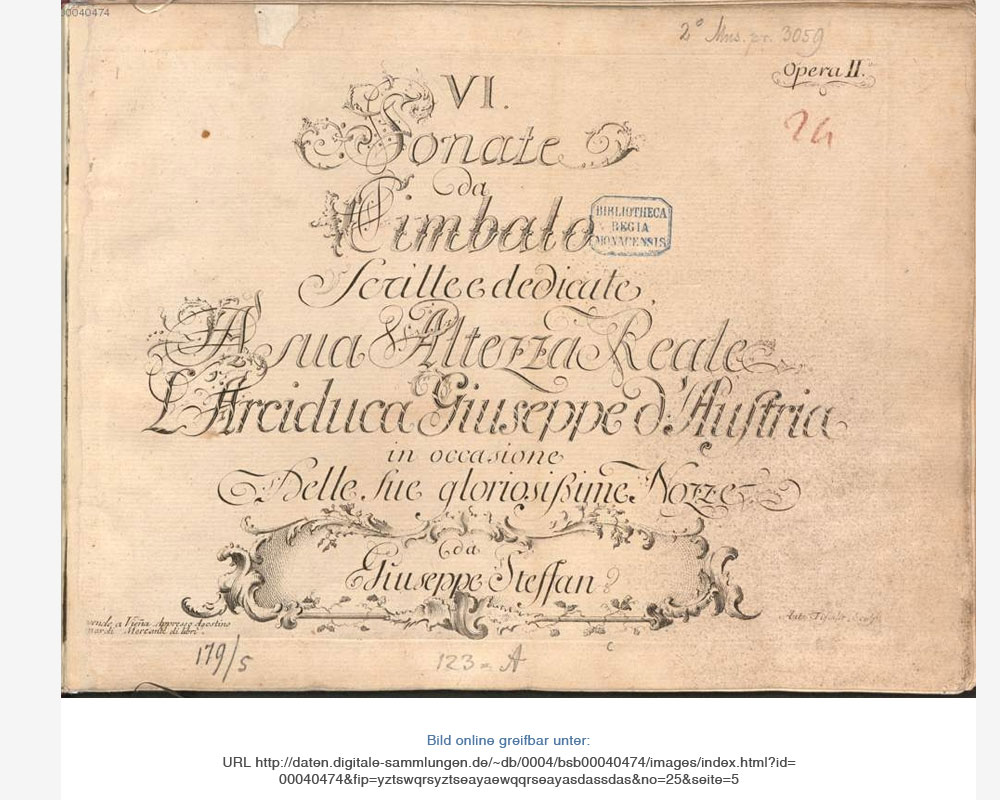 00040474
2° Mus. pr. 3059
Opera II.
24
VI.
Sonate
da
Cimbalo
BIBLIOTHECA
REGIA
MONACENSIS
Scritte e dedicate
A sua Altezza Reale
L'Arciduca Giuseppe d'Austria
in occasione
Delle sue gloriosissime Nozze
da
Giuseppe Steffan
vende a Viena appresso Agostino
nardi Mercante di libri.
Sculp
179/5
123 = A
Bild online greifbar unter:
URL http://daten.digitale-sammlungen.de/~db/0004/bsb00040474/images/index.html?id=
00040474&fip=yztswqrsyztseayaewqqrseayasdassdas&no=25&seite=5